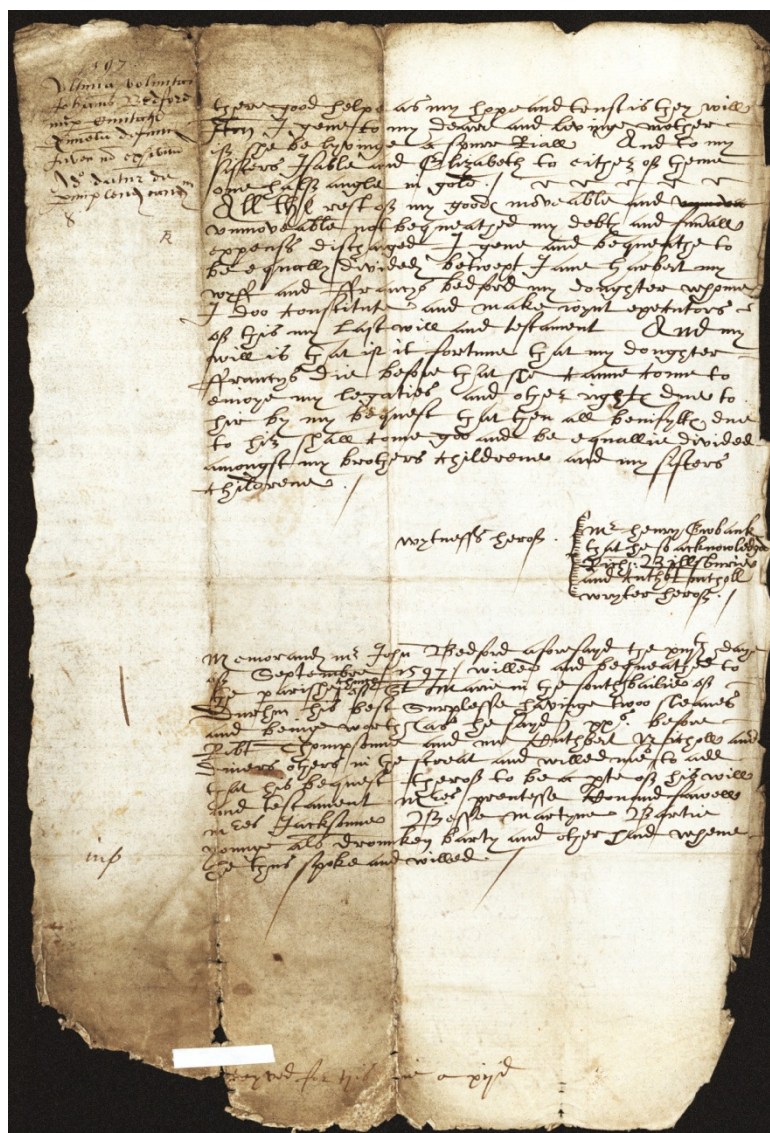 1597
Ultima voluntas
Johannis Bedford
there good helpe as my hope and trust is they will
Itm I geve to my deare and lovinge mother
if she be lyvinge a spurr Riall And to my
sisters Isable and Elizabeth to either off theme
one halff angle in gold /
All the rest off my goods moveable and
unmoveable not bequeathed my debts and funall
expenss discharged I geve and bequeathe to
be equally divided betwext Jane harbert my
wyff and ffrancys bedford my doughter whome
I doo constitute and make ioynt executors
off this my Last will and testament And my
will is that if it fortune that my doughter
ffrancys die before that she came come to
enioye my legaties and other rights due to
hir by my bequest that then all benifytts due
to hir shall come goo and be equallie divided
amongst my brothers childrene and my sisters
childrene /
wytnesss heroff
Mr henry Ewbank
that he so acknowledged
Rich: Billsburie
and Cuthbt Nicholl
wryter heroff /
Memorand mr John Bedford aforesayd the day
off Septembre 1597 / willed and bequeathed to
the parishe church off St Marie in the southbailie off
Durhm his best Surplesse havinge twoo sleaves
and beinge worth (as he sayd) xxs. before
Robt Thompsone and me Cuthbert Nicholl and
divers others in the streat and willed me to add
that his bequest theroff to be a pte off his will
and testament mres prentesse
mres Jacksone Besse Martyne Bartie
younge als dronken barty and other had whene
he thus spoke and willed /